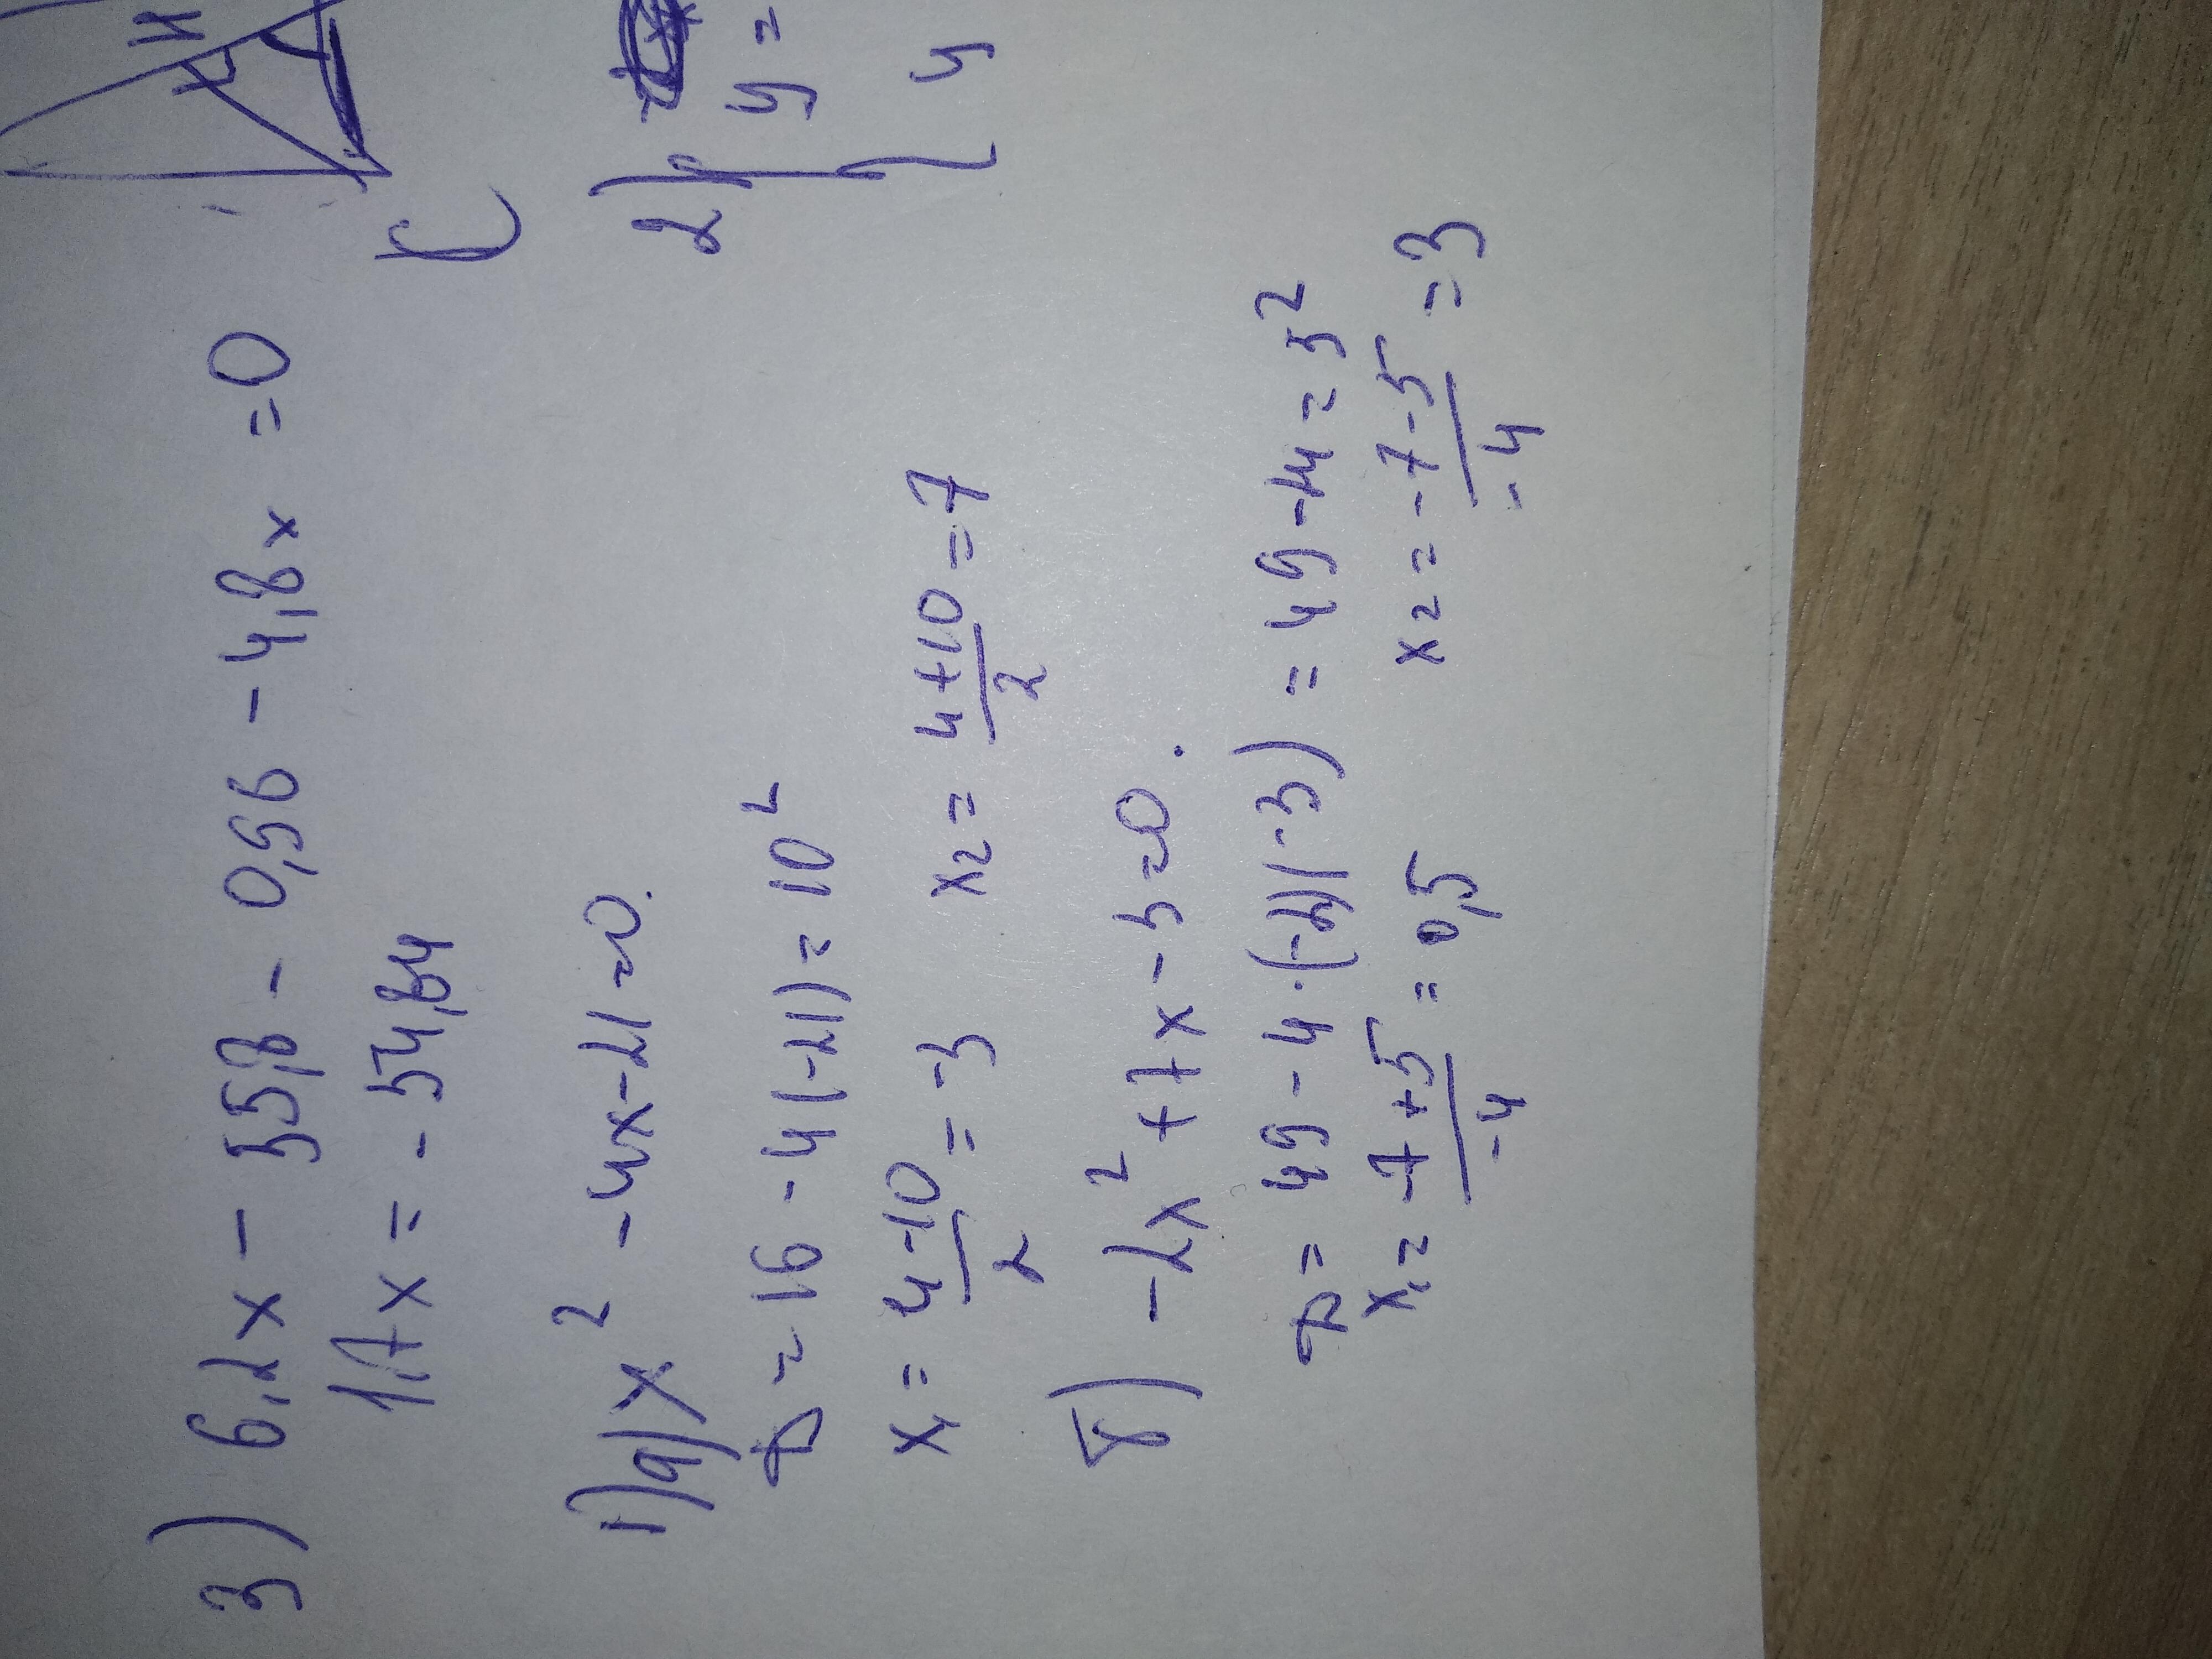 3) 6,2x - 55,8 - 0,56 - 4,8x = 0
1,7x = -54,84
1) а) x² - 4x - 21 = 0.
D = 16 - 4(-21) = 10²
x₁ = (4-10)/2 = -3 x₂ = (4+10)/2 = 7
б) -2x² + 7x - 3 = 0.
D = 49 - 4·(-2)(-3) = 49 - 24 = 5²
x₁ = (-7+5)/-4 = 0,5 x₂ = (-7-5)/-4 = 3
H
C
2)
y =
y